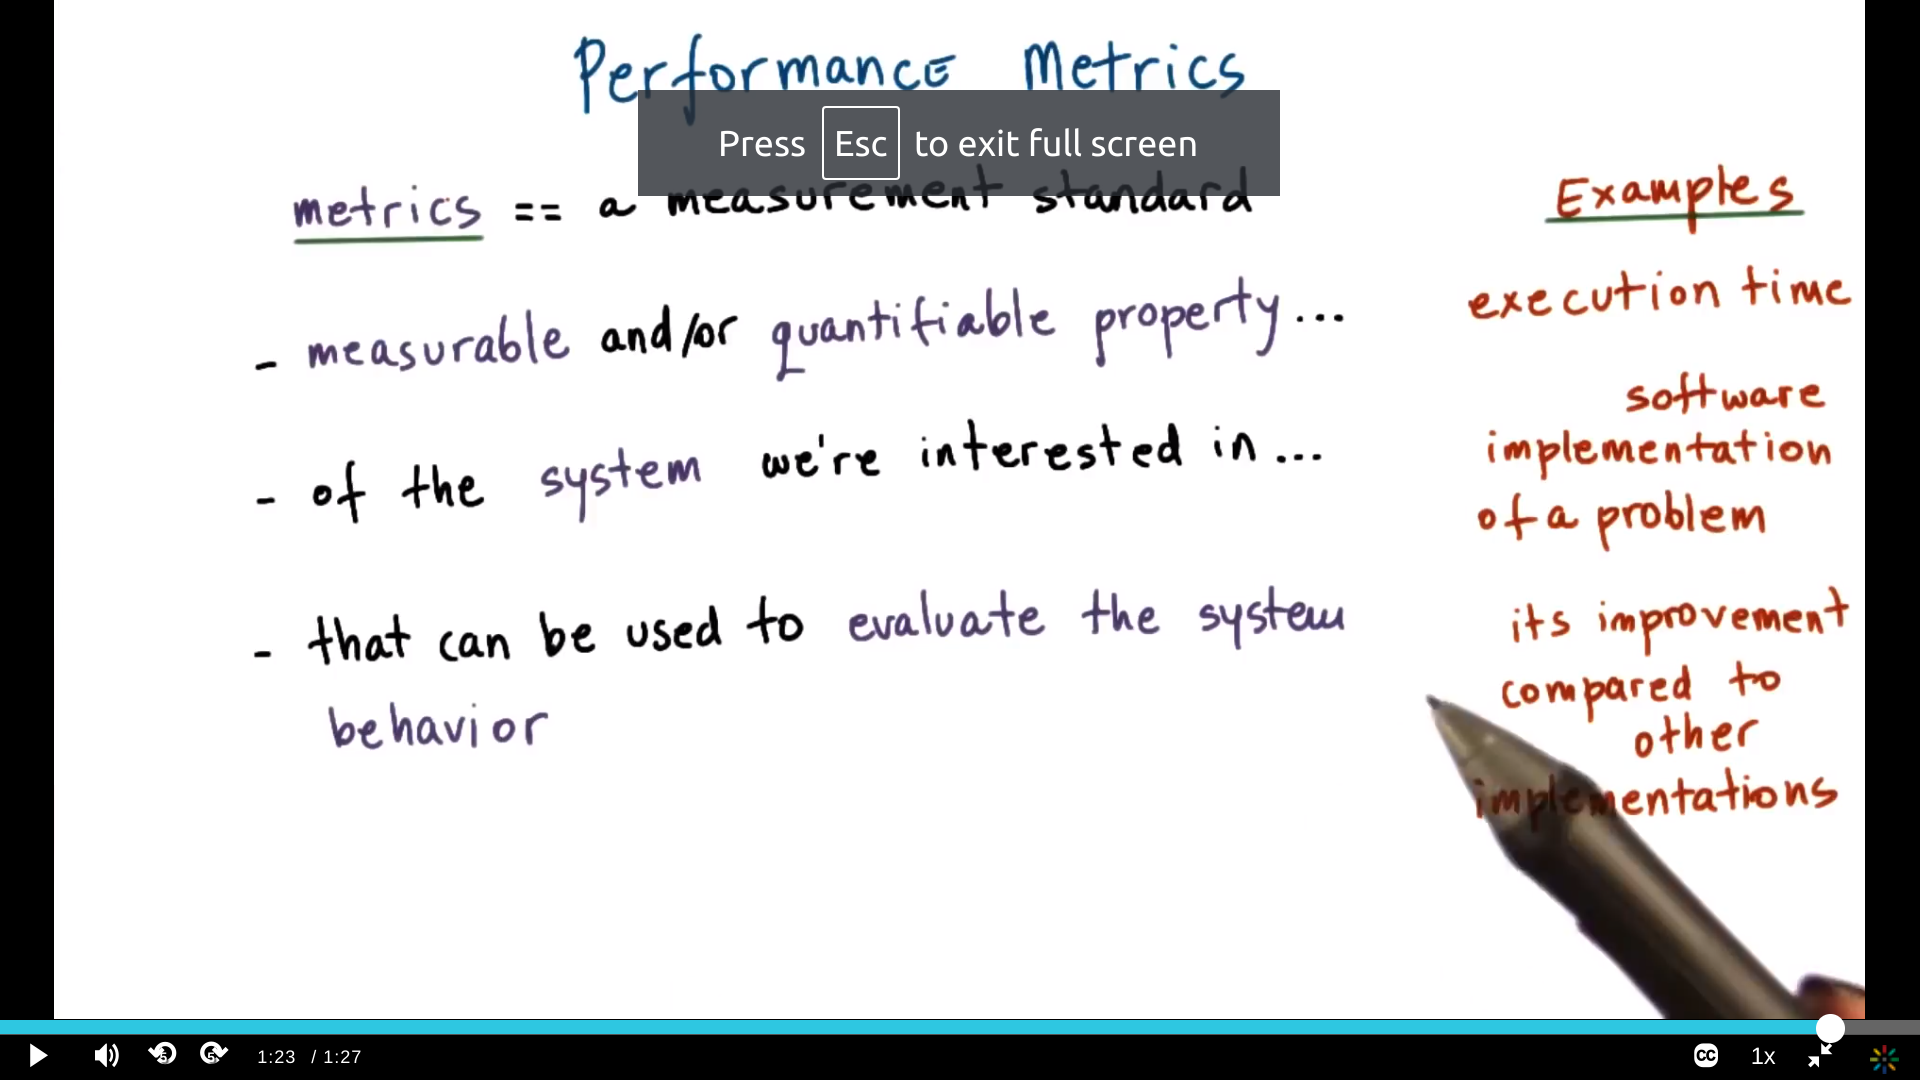 Performance Metrics
Press Esc to exit full screen
metrics == a measurement standard
- measurable and/or quantifiable property...
- of the system we're interested in...
- that can be used to evaluate the system
behavior
Examples
execution time
software
implementation
of a problem
its improvement
compared to
other
implementations
5
5
1:23 / 1:27
CC
1x